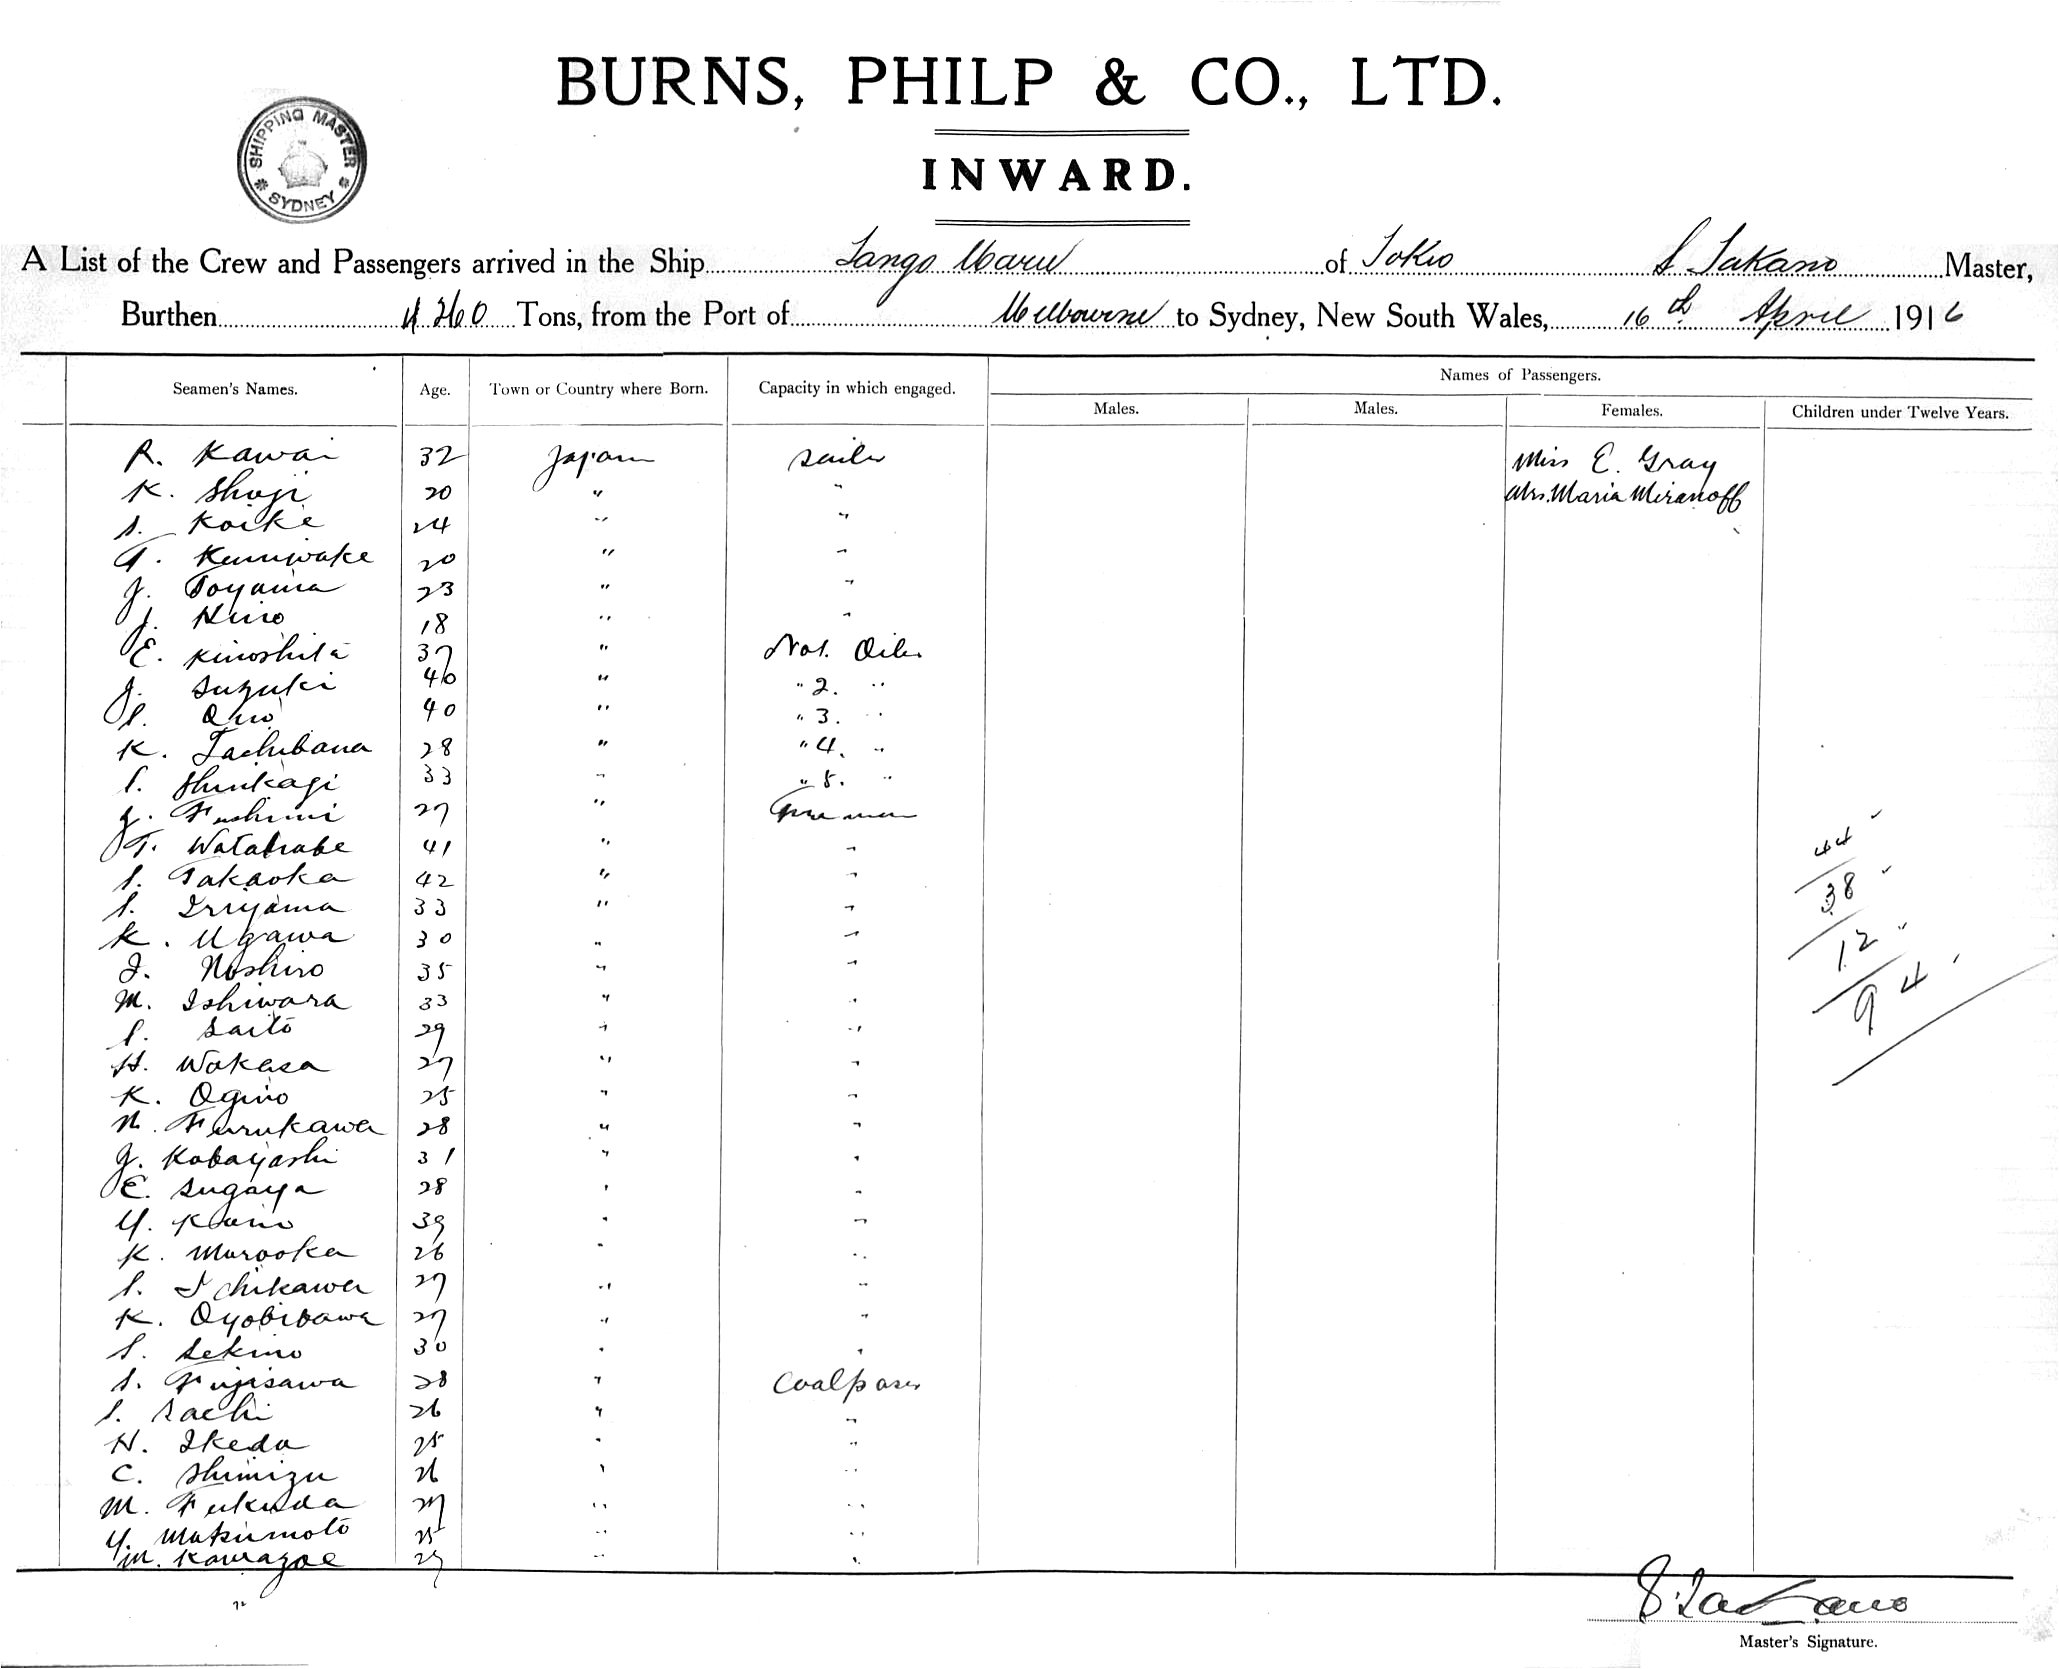 BURNS, PHILP & CO., LTD.
SHIPPING MASTER SYDNEY
INWARD.
A List of the Crew and Passengers arrived in the Ship Tango Maru of Tokio S Takano Master,
Burthen Tons, from the Port of Melbourne to Sydney, New South Wales, 16th April 1916
Names of Passengers.
Seamen's Names. Age. Town or Country where Born. Capacity in which engaged. Males. Males. Females. Children under Twelve Years.
R. Kawai 32 Japan sailor Miss E. Gray
K. Shoji 20 " " Mrs. Maria Miranoff
S. Koike 24 " "
T. Kumiwake 20 " "
J. Toyama 23 " "
J. Hino 18 " "
E. Kinoshita 37 " No 1. Oiler
J. Suzuki 40 " " 2. "
S. Ono 40 " " 3. "
K. Tachibana 28 " " 4. "
S. 33 " " 5. "
J. Fushimi 27 " Fireman
T. Watanabe 41 " "
S. Takaoka 42 " "
S. Iriyama 33 " "
K. Ugawa 30 " "
I. Noshiro 35 " "
M. Ishiwara 33 " "
S. Saito 29 " "
H. Wakasa 27 " "
K. Ogino 25 " "
N. Furukawa 28 " "
J. Kobayashi 31 " "
E. Sugaya 28 " "
Y. 39 " "
K. Murooka 26 " "
S. Ichikawa 27 " "
K. 27 " "
S. Sekino 30 " "
S. Fujisawa 28 " Coalpaser
S. Sachi 26 " "
H. Ikeda 25 " "
C. Shimizu 26 " "
M. Fukuda 27 " "
Y. Matsumoto 25 " "
M. Kawazoe 29 " "
44
38
12
94
S. Takano
Master's Signature.